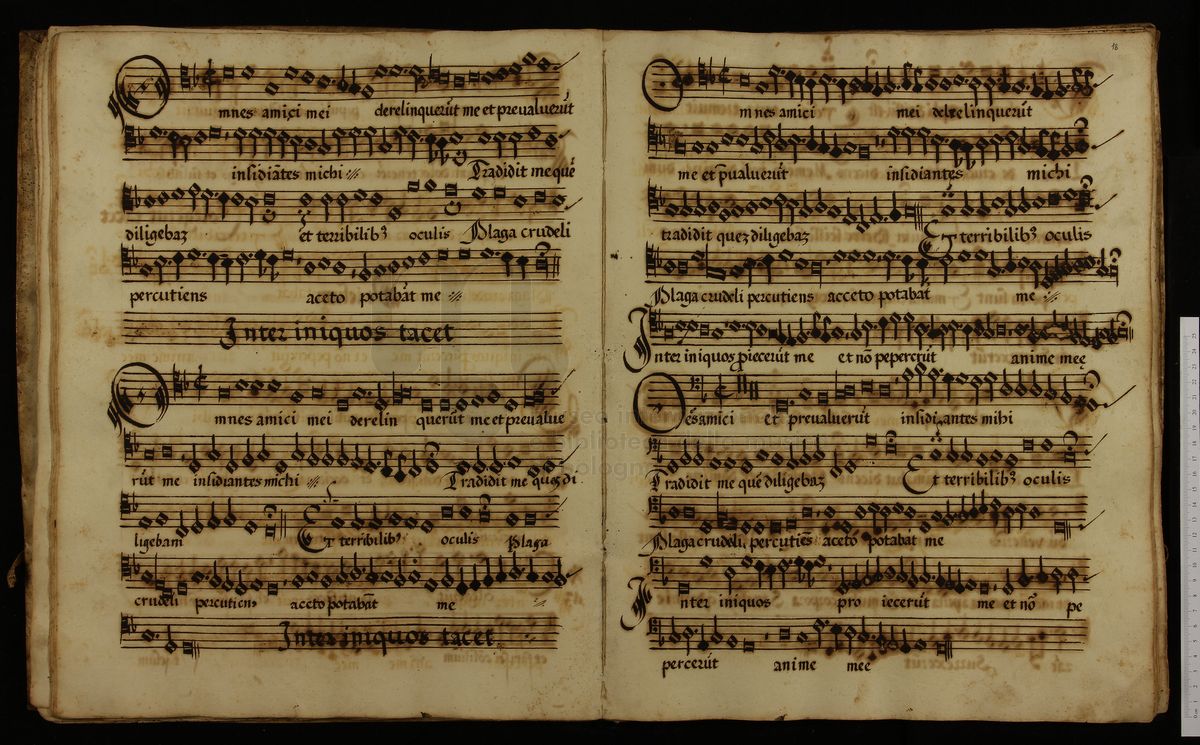 mnes amici mei derelinquerūt me et prevaluerūt
insidiātes michi Tradidit me quē
diligebaz et terribilibꝫ oculis Plaga crudeli
percutiens aceto potabāt me
Inter iniquos tacet
mnes amici mei derelin querūt me et prevalue
rūt me insidiantes michi Tradidit me quez di
ligebam Et terribilibꝫ oculis Plaga
crudeli percutienꝫ acceto potabāt me
Inter iniquos tacet
18
Omnes amici mei derelinquerūt
me et p̄ualuerūt insidiantes michi
tradidit quez diligebaz Et terribilibꝫ oculis
Plaga crudeli percutiens acceto potabāt me
Inter iniquos ꝓiecerūt me et nō pepercrūt anime meę
Oēs amici et prevaluerūt insidiantes mihi
Tradidit me quē diligebaz Et terribilibꝫ oculis
Plaga crudeli percutiēs aceto potabāt me
Inter iniquos pro iecerūt me et nō pe
percerūt anime mee